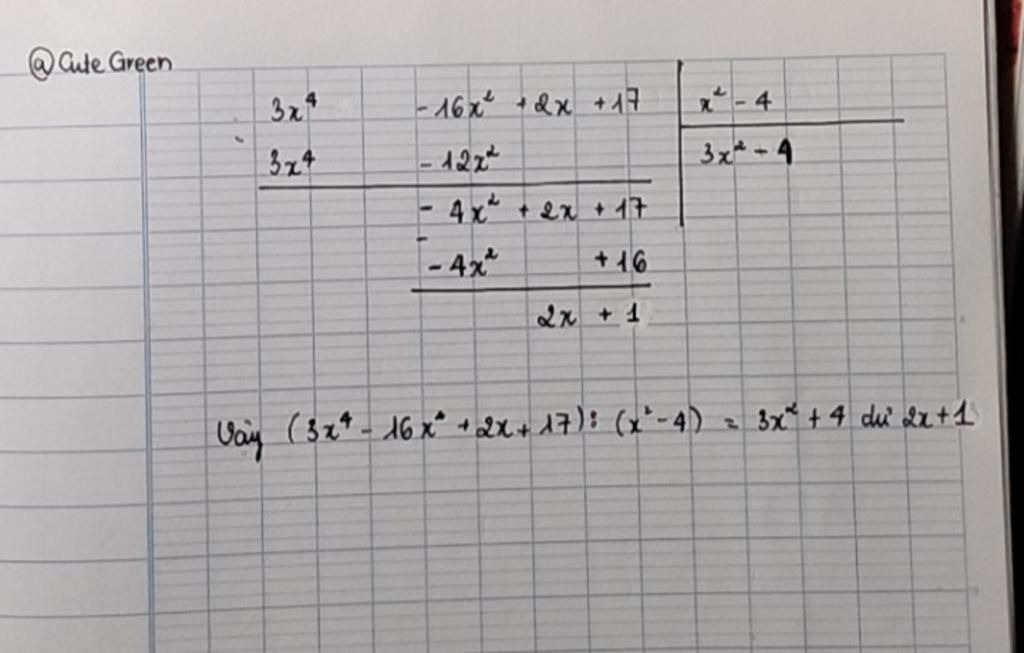 @Cute Green
3x⁴ - 16x² + 2x + 17 x² - 4
- 3x⁴ - 12x² 3x² - 4
- 4x² + 2x + 17
-
- 4x² + 16
2x + 1
Vậy (3x⁴ - 16x² + 2x + 17) : (x² - 4) = 3x² + 4 dư 2x + 1